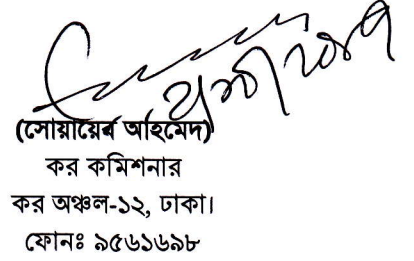 (সোয়ায়েব আহমেদ)
কর কমিশনার
কর অঞ্চল-১২, ঢাকা।
ফোনঃ ৯৫৬১৬৯৮